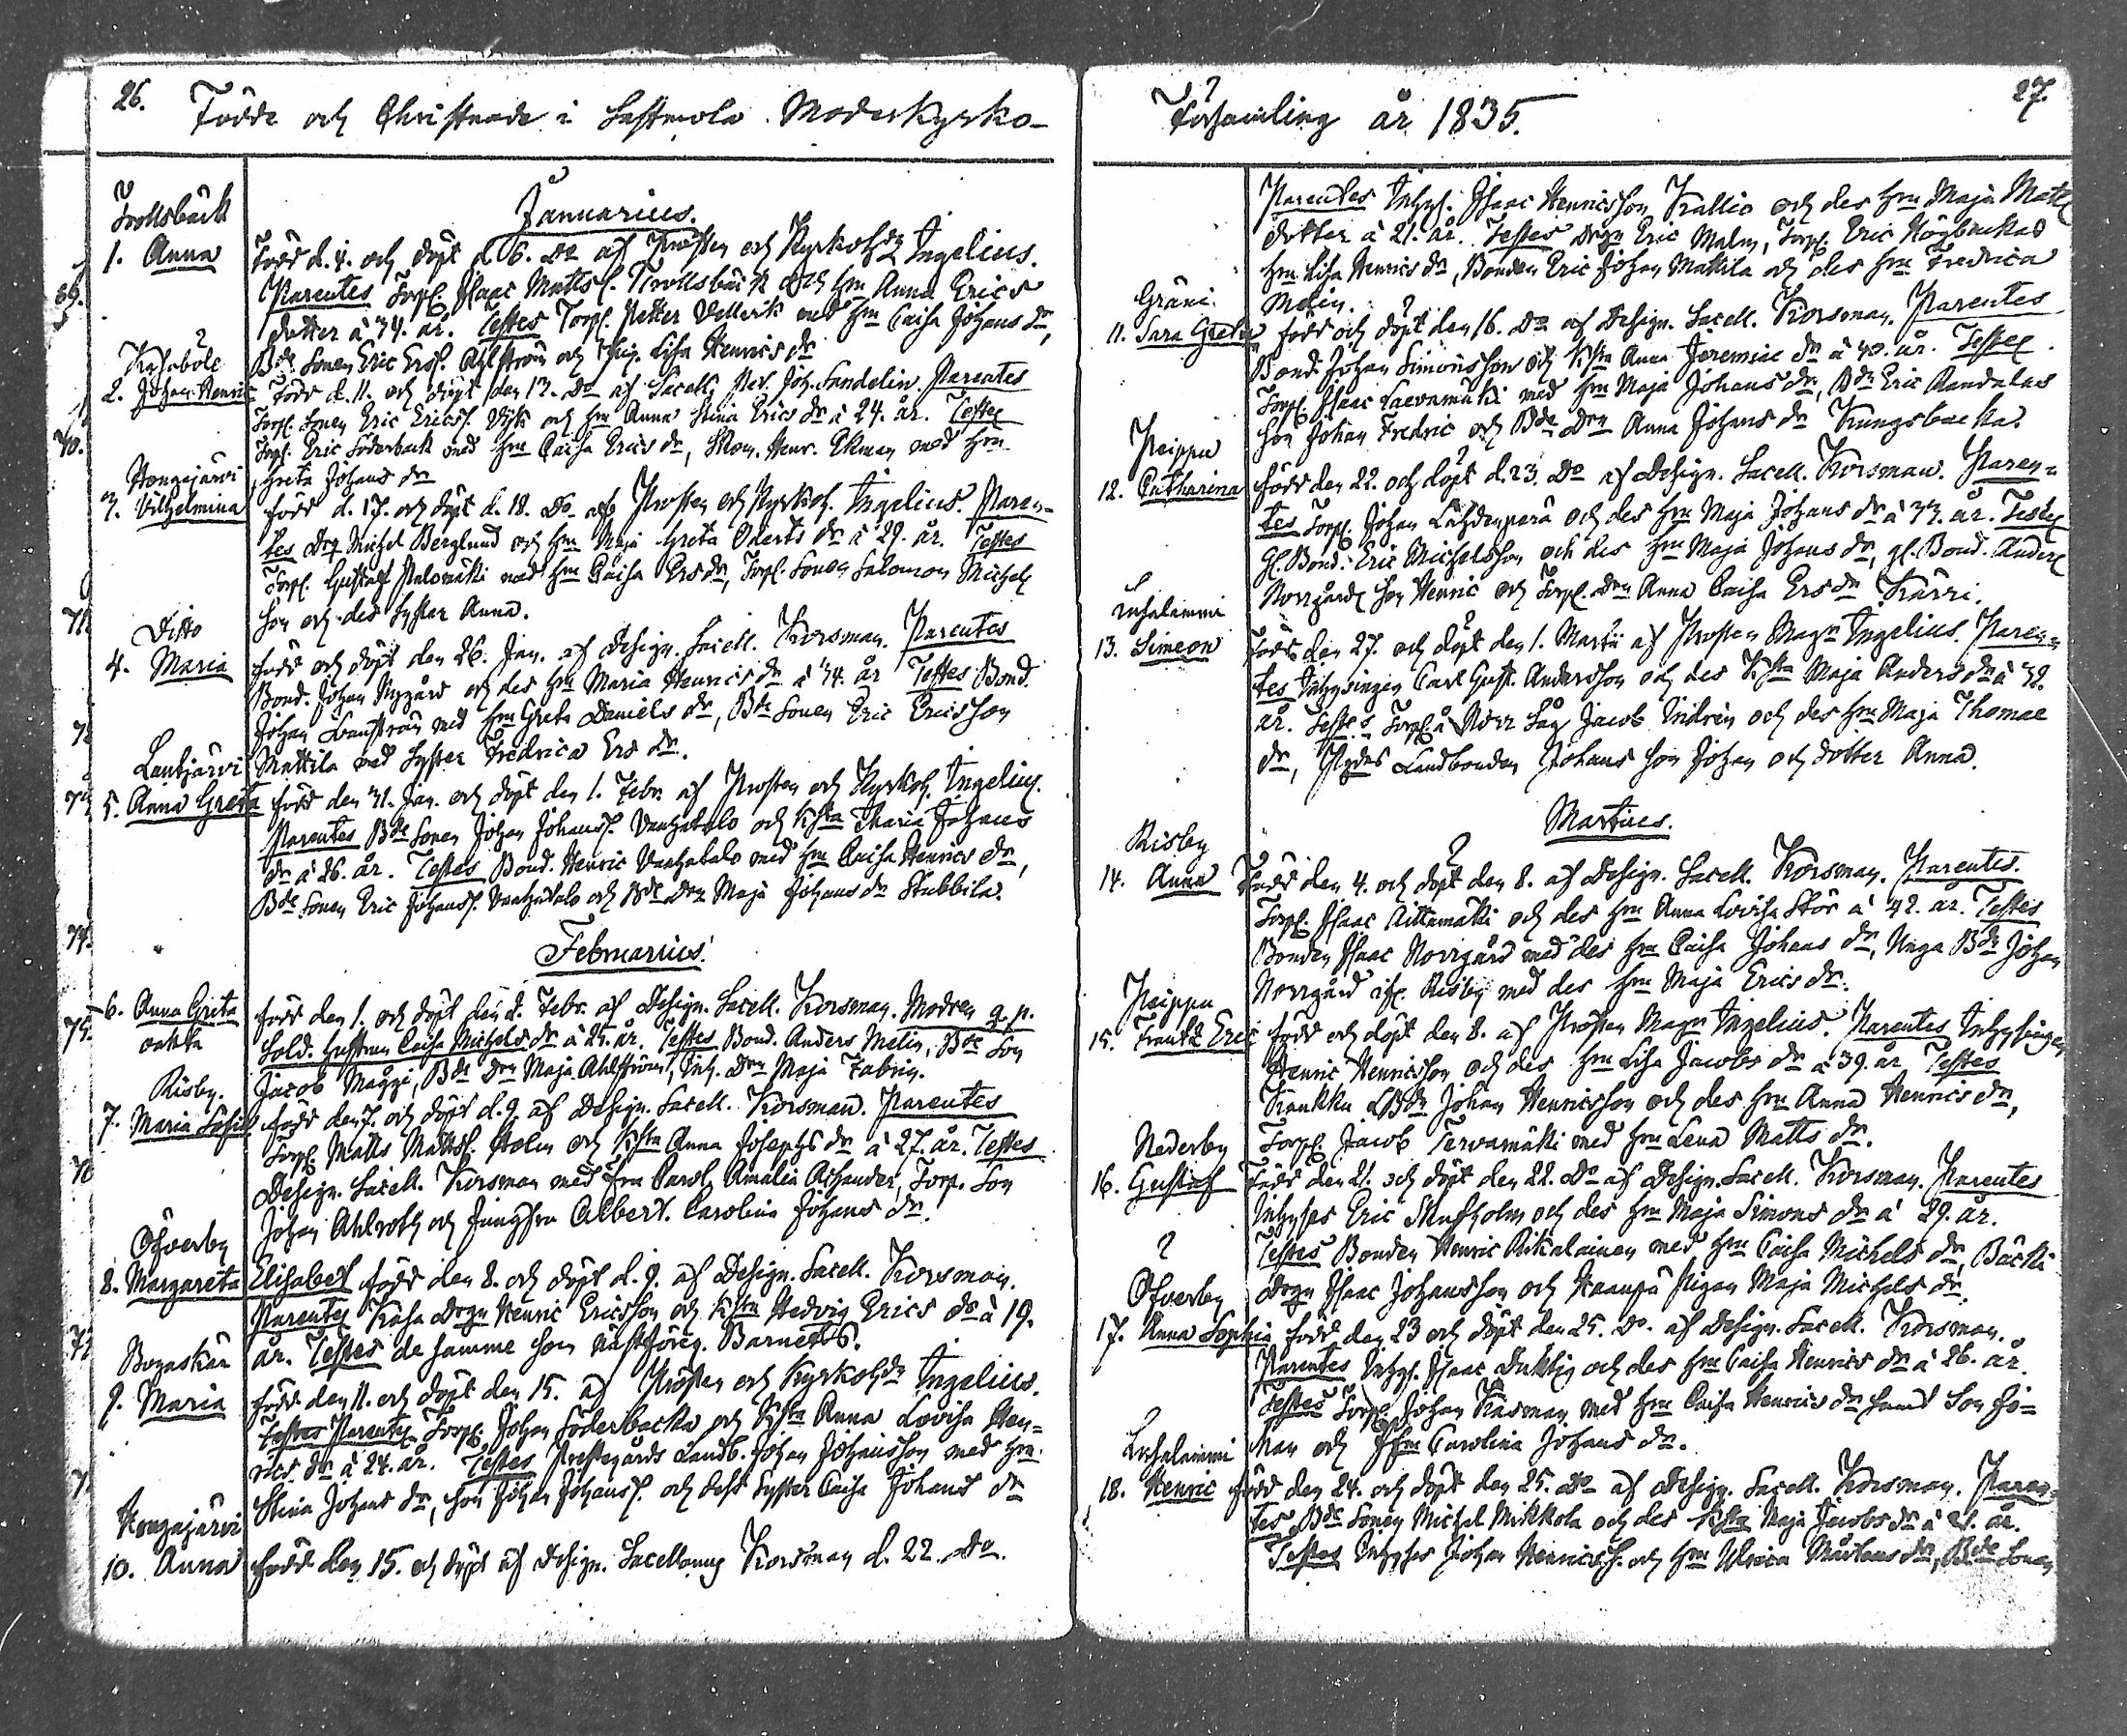 26.
Födde och Christnade i Lestmola Moderkyrko-
Januarius.
Trollsbäck
1. Anna
Född d. 4. och döpt d. 6. Do af Prosten och Kyrkohdn Ingelius.
Parentes Torp. Isaac Matts. Trollsbäck och Hm Anna Erics
dotter à 34. år. Testes Torp. Petter Vellerik med Hm Caisa Johans dr,
Bde Sonen Eric Ers. Ahlström och Pig. Lisa Henrics dr
2. Johan Henric
Född d. 11. och döpt den 13. Do af Sacell. Joh. Sandelin. Parentes
Torp. Sonen Eric Erics. och Hm Anna Stina Erics dr à 24. år. Testes
Torp. Eric Söderback med Hm Caisa Erics dr, Henr. Ekman med Hm
Greta Johans dr
Hongajärvi
3. Vilhelmina
född d. 17. och döpt d. 18. Do. af Prosten och Kyrkoh. Ingelius. Paren-
tes Drg Michel Berglund och Hm Maja Greta à 29. år. Testes
Torp. Gustaf Palomäki med Hm Caisa Ers dr, Torp. Sonen Salomon Michels
son och des Syster Anna.
Ditto
4. Maria
född och döpt den 26. Jan. af Design. Sacell. Korsman. Parentes
Bond. Johan Nygård och des Hm Maria Henrics dr à 34. år Testes Bond.
Johan med Hm Greta Daniels dr, Bde Sonen Eric Ericsson
Mattila med Syster Fredrica Ers dr.
Lautjärvi
5. Anna Greta
född den 31. Jan. och döpt den 1. Febr. af Prosten och Kyrkoh. Ingelius.
Parentes Bde Sonen Johan Johans. Vanhatalo och Hsta Maria Johans
dr à 26. år. Testes Bond. Henric Vanhatalo med Hm Caisa Henrics dr,
Bde Sonen Eric Johans. Vanhatalo och Bde Drn Maja Johans dr Stubbila.
Februarius.
6. Anna Greta
oäkta
född den 1. och döpt den 2. Febr. af Design. Sacell. Korsman. Modren q.p.
Sold. Hustrun Caisa Michels dr à 25. år. Testes Bond. Anders Melin, Bde Son
Jacob Mäggi, Bde Drn Maja Ahlström, Inh. Drn Maja Fabrin.
Risby.
7. Maria Sofia
född den 7. och döpt d. 9. af Design. Sacell. Korsman. Parentes
Torp. Matts Matts. Holm och Hsta Anna Josephs dr à 27. år. Testes
Design. Sacell. Korsman med Fru Carol. Amalia Achander, Torp. Son
Johan Ahlroth och Jungfru Albert. Carolina Johans dr.
Öfverby
8. Margareta
Elisabet född den 8. och döpt d. 9. af Design. Sacell. Korsman.
Parentes Kasa Drgn Henric Ericsson och Hsta Hedvig Erics dr à 19.
år. Testes de samme som nästföreg. Barnets.
9. Maria
född den 11. och döpt den 15. af Prosten och Kyrkohdn Ingelius.
Testes Parentes Torp. Johan Söderbacka och Hsta Anna Lovisa Hen-
rics dr à 24. år. Testes Prestegårds Landb. Johan Johansson med Hm
Stina Johans dr, son Johan Johans. och dess Syster Caisa Johans dr
Hongajärvi
10. Anna
född den 15. och döpt af Design. Sacellanus Korsman d. 22. Do.
27.
Församling år 1835.
Parentes Inhys. Isaac Henricsson Kallio och des Hm Maja Matts
dotter à 21. år. Testes Drgn Eric Malm, Torp. Eric Högbackas
Hm Lisa Henrics dr, Bonden Eric Johan Mattila och des Hm Fredrica
Melin.
Gräni
11. Sara Greta
född och döpt den 16. Do af Design. Sacell. Korsman. Parentes
Bond. Johan Simonsson och Hsta Anna Jeremiæ dr à 40. år. Testes
Torp. Isaac med Hm Maja Johans dr, Bdn Eric Randalas
son Johan Fredric och Bde Drn Anna Johans dr Kungsbacka.
Peippu
12. Catharina
född den 22. och döpt d. 23. Do af Design. Sacell. Korsman. Paren-
tes Torp. Johan Lähdenperä och des Hm Maja Johans dr à 33. år. Testes
Gl. Bond. Eric Michelsson och des Hm Maja Johans dr, gl. Bond. Anders
Norrgårds son Henric och Torp. Drn Anna Caisa Ers dr Kärri.
13. Simeon
Född den 27. och döpt den 1. Martii af Prosten Magn Ingelius. Paren-
tes Inhysingen Carl Gust. Andersson och des Hsta Maja Anders dr à 32.
år. Testes Torp. å Norr Såg Jacob Indrén och des Hm Maja Thomae
dr, Landbonden Johans son Johan och dotter Anna.
Martius.
Risby
14. Anna
Född den 4. och döpt den 8. af Design. Sacell. Korsman. Parentes.
Torp. Isaac Aittamäki och des Hm Anna Lovisa Stör à 42. år. Testes
Bonden Isaac Norrgård med des Hm Caisa Johans dr, Unga Bdn Johan
Norrgård ifr. Risby med des Hm Maja Erics dr.
Peippu
15. Frantz Eric
född och döpt den 8. af Prosten Magn Ingelius. Parentes Inhysingen
Henric Henricsson och des Hm Lisa Jacobs dr à 39. år Testes
Krankku LBdn Johan Henricsson och des Hm Anna Henrics dr,
Torp. Jacob Tervamäki med Hm Lena Matts dr.
Nederby
16. Gustaf
Född den 21. och döpt den 22. Do af Design. Sacell. Korsman. Parentes
Inhyses Eric Skogholm och des Hm Maja Simons dr à 29. år.
Testes Bonden Henric Rikalainen med Hm Caisa Michels dr, Bäcki
Drgn Isaac Johansson och Kaanpä Pigan Maja Michels dr.
Öfverby
17. Anna Sophia
född den 23 och döpt den 25. Do. af Design. Sacell. Korsman.
Parentes Inhys. Isaac Duktig och des Hm Caisa Henrics dr à 26. år.
Testes Torp. Johan Kasman med Hm Caisa Henrics dr samt Son Jo-
han och Carolina Johans dr.
18. Henric
född den 24. och döpt den 25. Do af Design. Sacell. Korsman. Paren-
tes Bde Sonen Michel Mikkola och des Hsta Maja Jacobs dr à 21. år.
Testes Inhyses Johan Henrics. och Hm Ulrica Mårtens dr, Bde Sonen